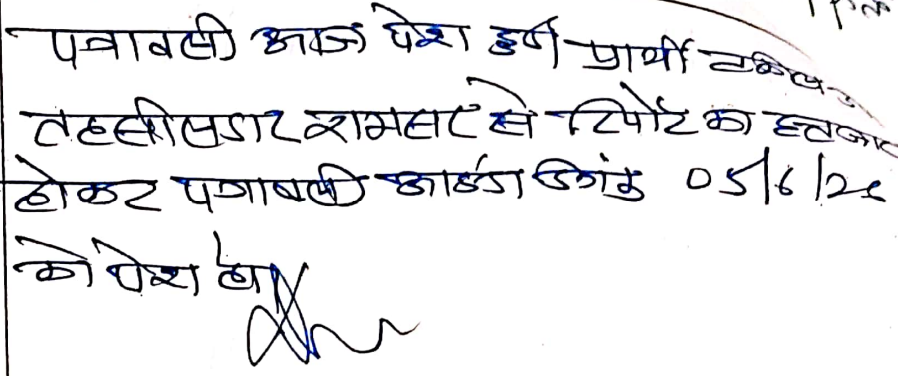 पत्रावली आज पेश हुई प्रार्थी वकील
तहसीलदार रामसर से रिपोर्ट का इन्तजार
होकर पत्रावली आईंदा दिनांक 05/6/2
को पेश हो